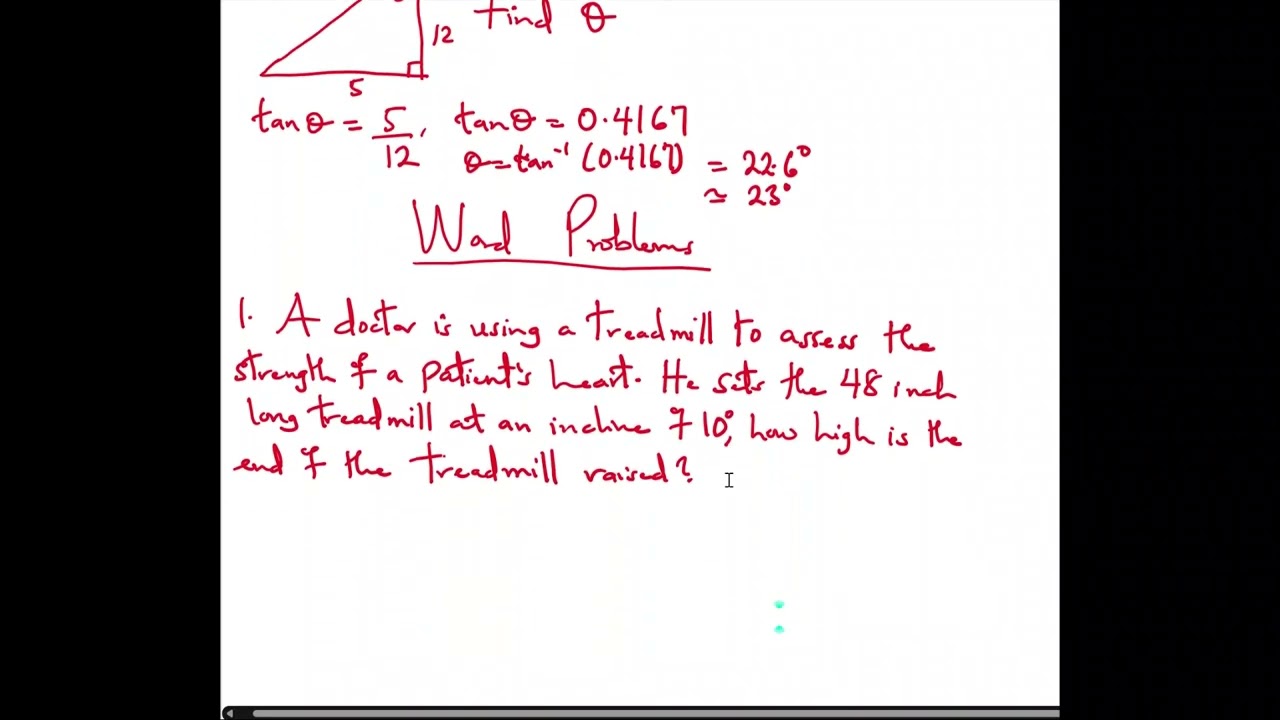 find θ
12
5
tanθ = 5/12, tanθ = 0.4167
θ = tan⁻¹ (0.4167) = 22.6°
≈ 23°
Word Problems
1. A doctor is using a treadmill to assess the
strength of a patient's heart. He sets the 48 inch
long treadmill at an incline of 10°, how high is the
end of the treadmill raised?